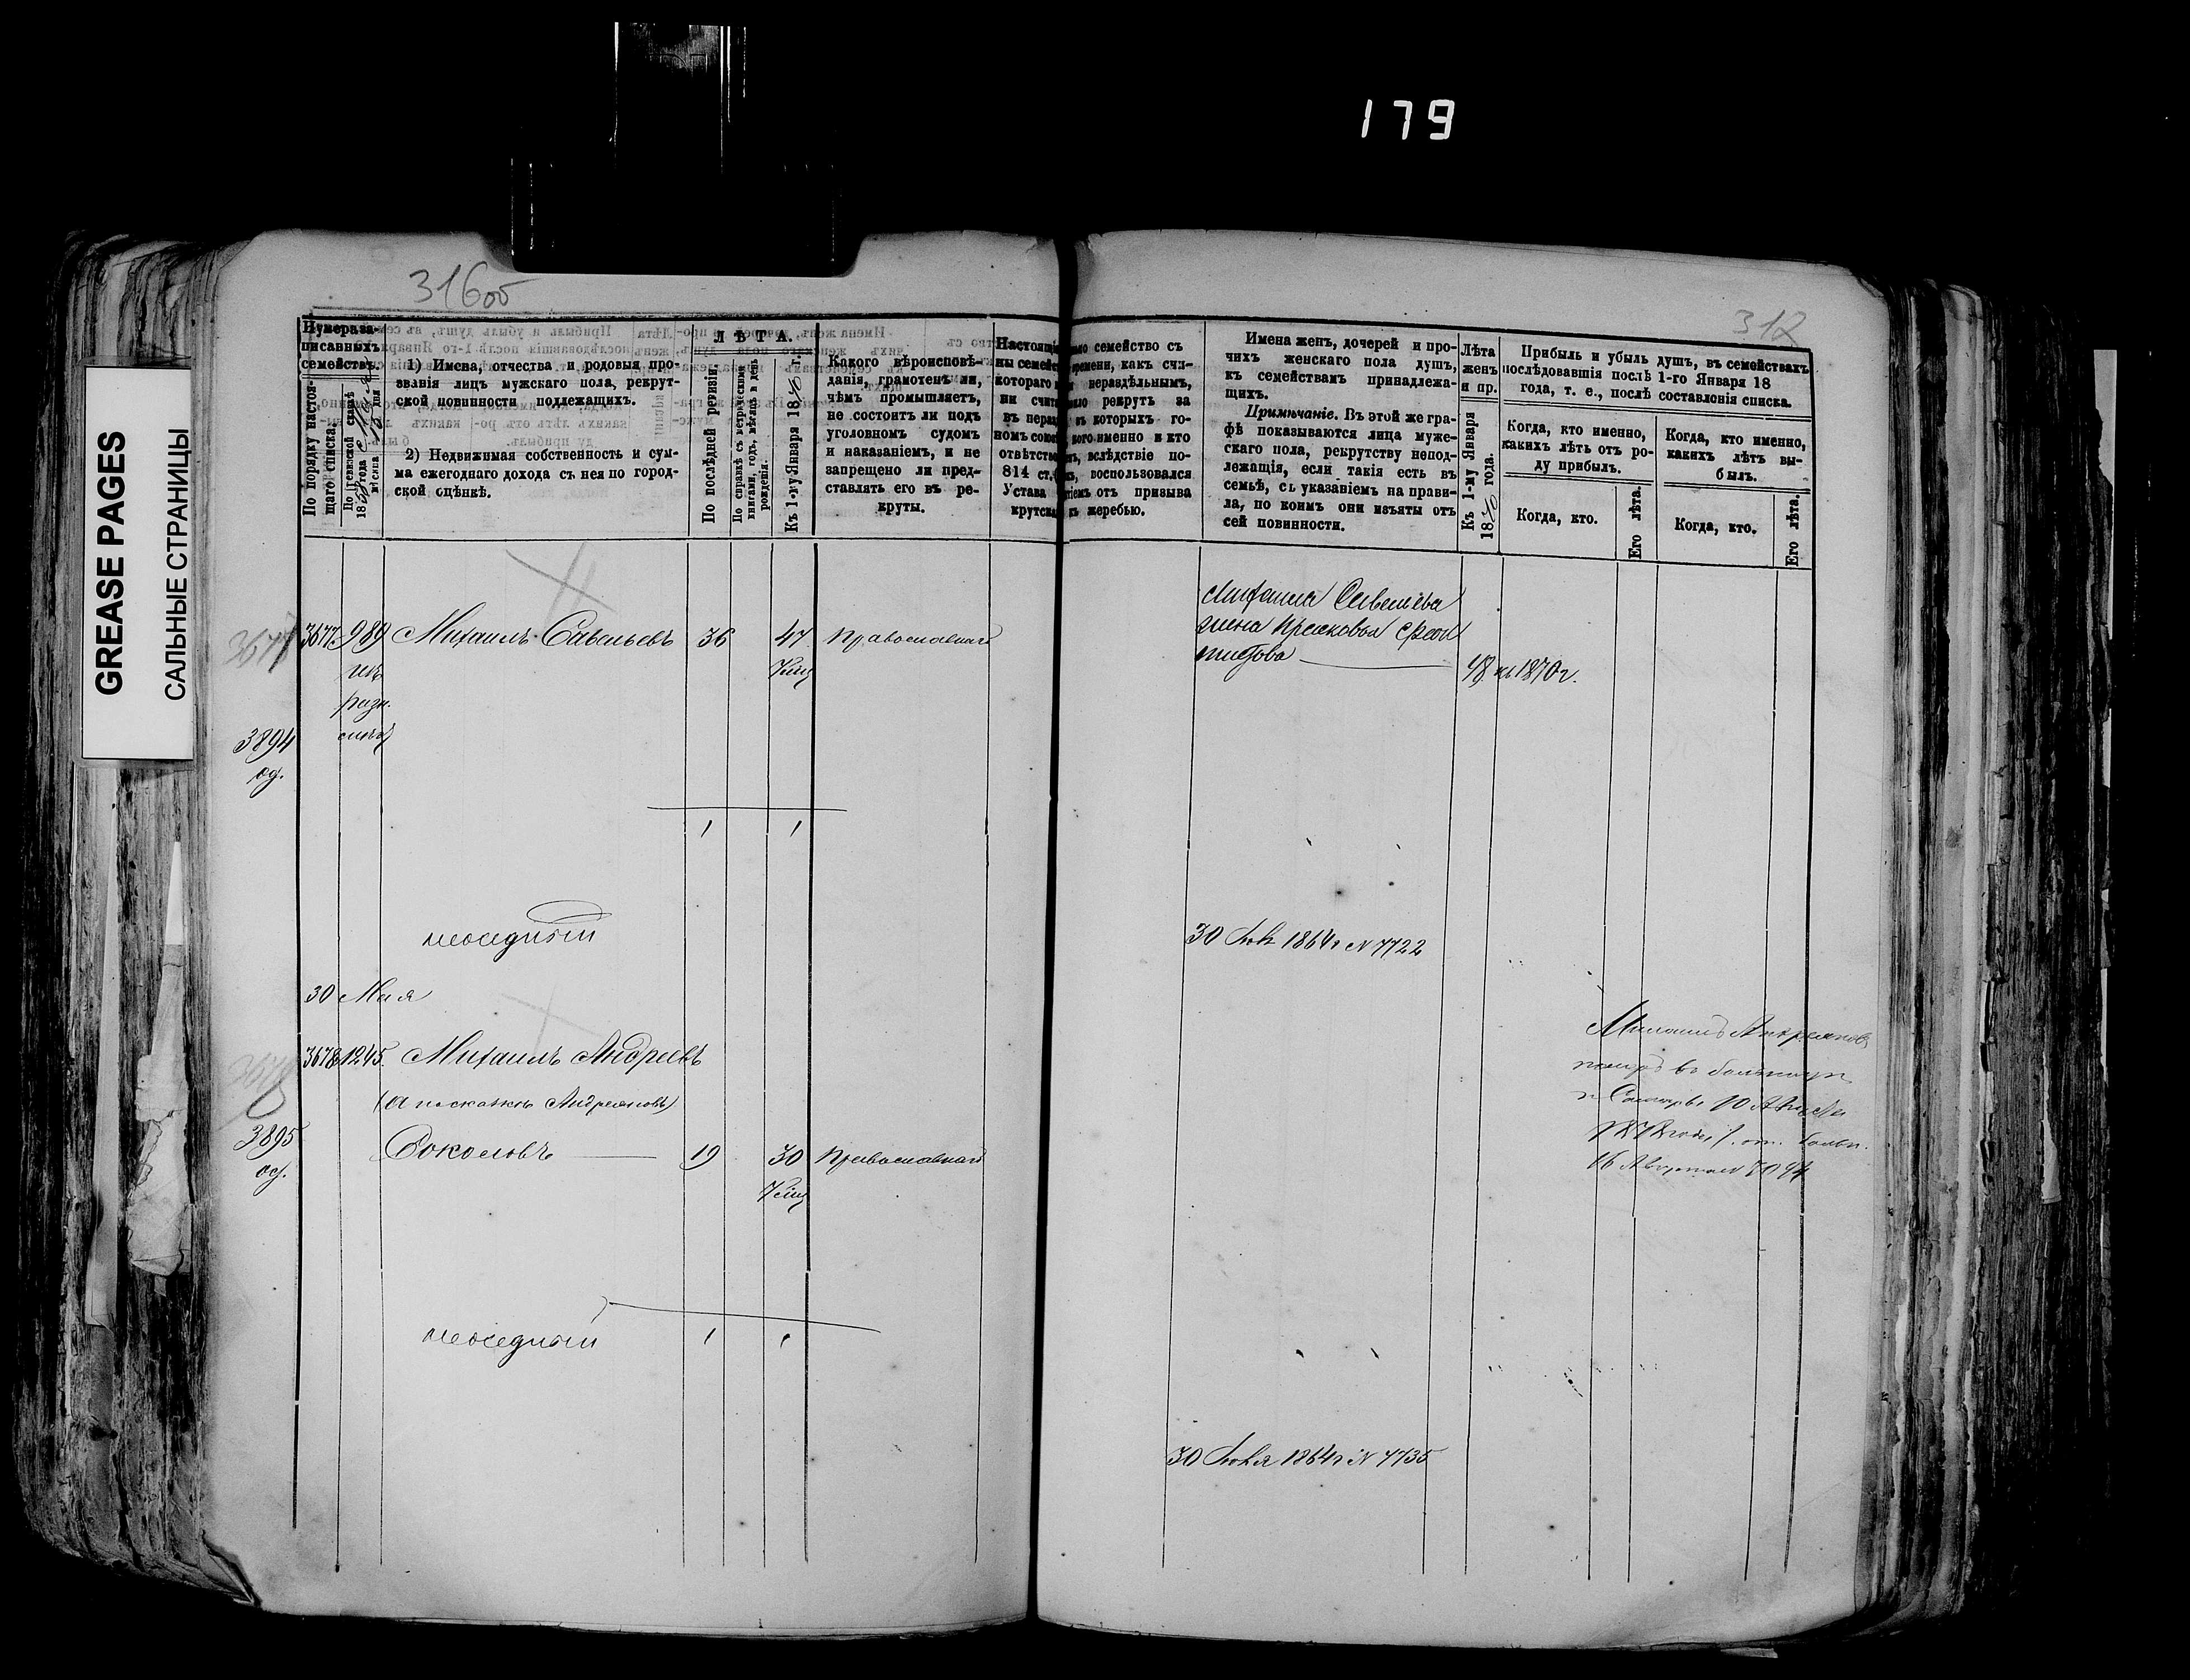 179
GREASE PAGES
САЛЬНЫЕ СТРАНИЦЫ
316об
317
Нумера за-
писанныхъ
семействъ.
По порядку настоя-
щаго списка.
1) Имена, отчества и родовыя про-
званія лицъ мужскаго пола, рекрут-
ской повинности подлежащихъ.
2) Недвижимая собственность и сум-
ма ежегоднаго дохода съ нея по город-
ской оцѣнкѣ.
ЛѢТА.
По послѣдней ревизіи.
По справкѣ съ метрическими
книгами, годъ, мѣсяцъ и день
рожденія.
Къ 1-му Января 1870 г.
Какого вѣроисповѣ-
данія, грамотенъ ли,
чѣмъ промышляетъ,
не состоитъ ли подъ
уголовнымъ судомъ
и наказаніемъ, и не
запрещено ли пред-
ставлять его въ ре-
круты.
семейство съ
времени, какъ счи-
котораго нераздѣльнымъ,
рекрутъ за
которыхъ го-
именно и кто
вслѣдствіе по-
814 ст. воспользовался
Устава отъ призыва
жеребью.
Имена женъ, дочерей и про-
чихъ женскаго пола душъ,
къ семействамъ принадлежа-
щихъ.
Примѣчаніе. Въ этой же гра-
фѣ показываются лица муже-
скаго пола, рекрутству непод-
лежащія, если такія есть въ
семьѣ, съ указаніемъ на прави-
ла, по коимъ они изъяты отъ
сей повинности.
Лѣта
женъ
и пр.
Къ 1-му Января
1870 года.
Прибыль и убыль душъ, въ семействахъ
послѣдовавшія послѣ 1-го Января 18
года, т. е., послѣ составленія списка.
Когда, кто именно,
какихъ лѣтъ отъ ро-
ду прибылъ.
Когда, кто.
Его лѣта.
Когда, кто именно,
какихъ лѣтъ вы-
былъ.
Когда, кто.
Его лѣта.
3677
3677 989 Михаилъ Савельевъ 36 47 Православнаго
изъ
разн.
3894
од.
1 1
Михаила Савельева
жена Прасковья
48 къ 1870 г.
неоседлый
30 1864 г N 7722
30 Мая
3678 1245. Михаилъ Андреевъ
(а по сказкѣ Андреяновъ)
3895
од.
Соколовъ 19 30 Православнаго
Михаилъ Андреяновъ
померъ въ больницѣ
16 Августа N 7094
неоседлый 1 1
30 1864 г N 7735